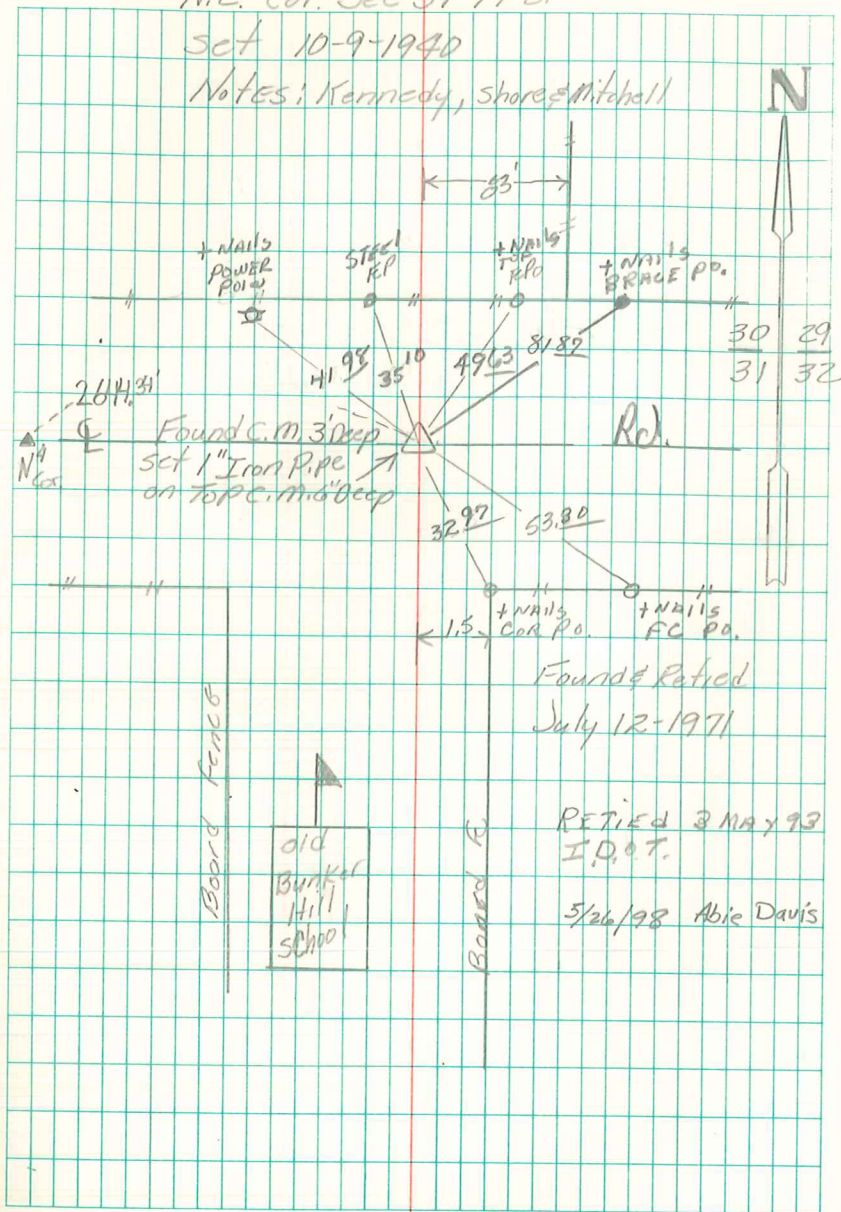 N.E. Cor. Sec 31
set 10-9-1940
Notes: Kennedy, Shore & Mitchell
N
+ NAIIS
POWER
STEEl
+ NAIIS
TOP
+ NAIIS
BRACE PO.
30 29
31 32
41 98
35 10
49 63
81 87
Found C.M. 3' Deep
set 1" Iron Pipe
on Top C.M. 6" Deep
Rd.
Cor.
32 97
53.80
1.5
+ NAIIS
COR PO.
+ NAIIS
FC PO.
Found & Retied
July 12-1971
Board Fence
old
Bunker
Hill
school
Board
RETIEd 3 MAY 93
I.D.O.T.
5/26/98 Abie Davis